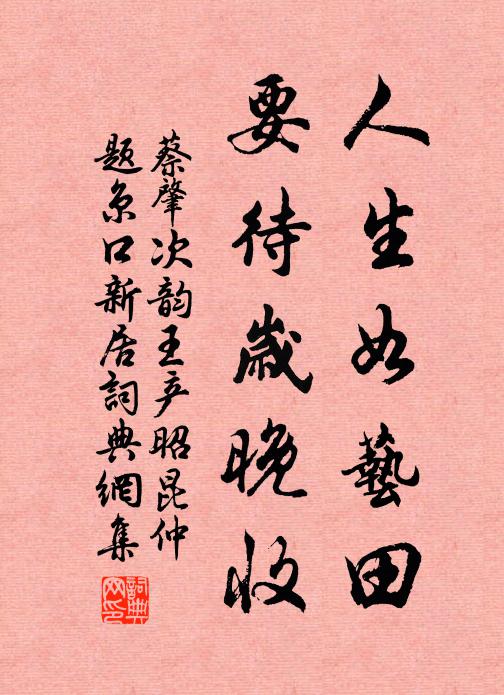 人生如藝田
要待歲晚收
蔡肇次韵王彦昭昆仲
題京口新居詞典網集
詞典網印